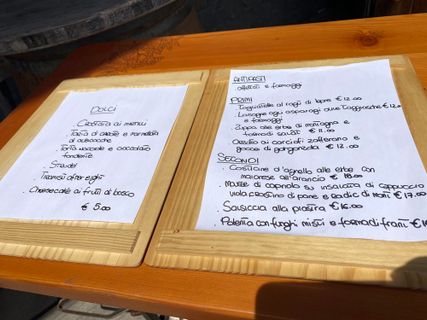 DOLCI
Crostata ai mirtilli
Torta di carote e marmellata
di albicocche
Torta nocciole e cioccolato
fondente
Strudel
Tiramisù after eight
Cheesecake ai frutti di bosco
€ 5.00
ANTIPASTI
affettati e formaggi
PRIMI
Tagliatelle al ragù di lepre € 12.00
Lasagne agli asparagi
e formaggi
Zuppa alle erbe di montagna e
€ 11.00
ai carciofi zafferano e
gocce di gorgonzola € 12.00
SECONDI
Costicine d'agnello alle erbe con
maionese all'arancia € 18.00
su insalata di cappuccio
viola crostino di pane e radici di € 17.00
Salsiccia alla piastra € 16.00
Polenta con funghi misti e formai di frant €